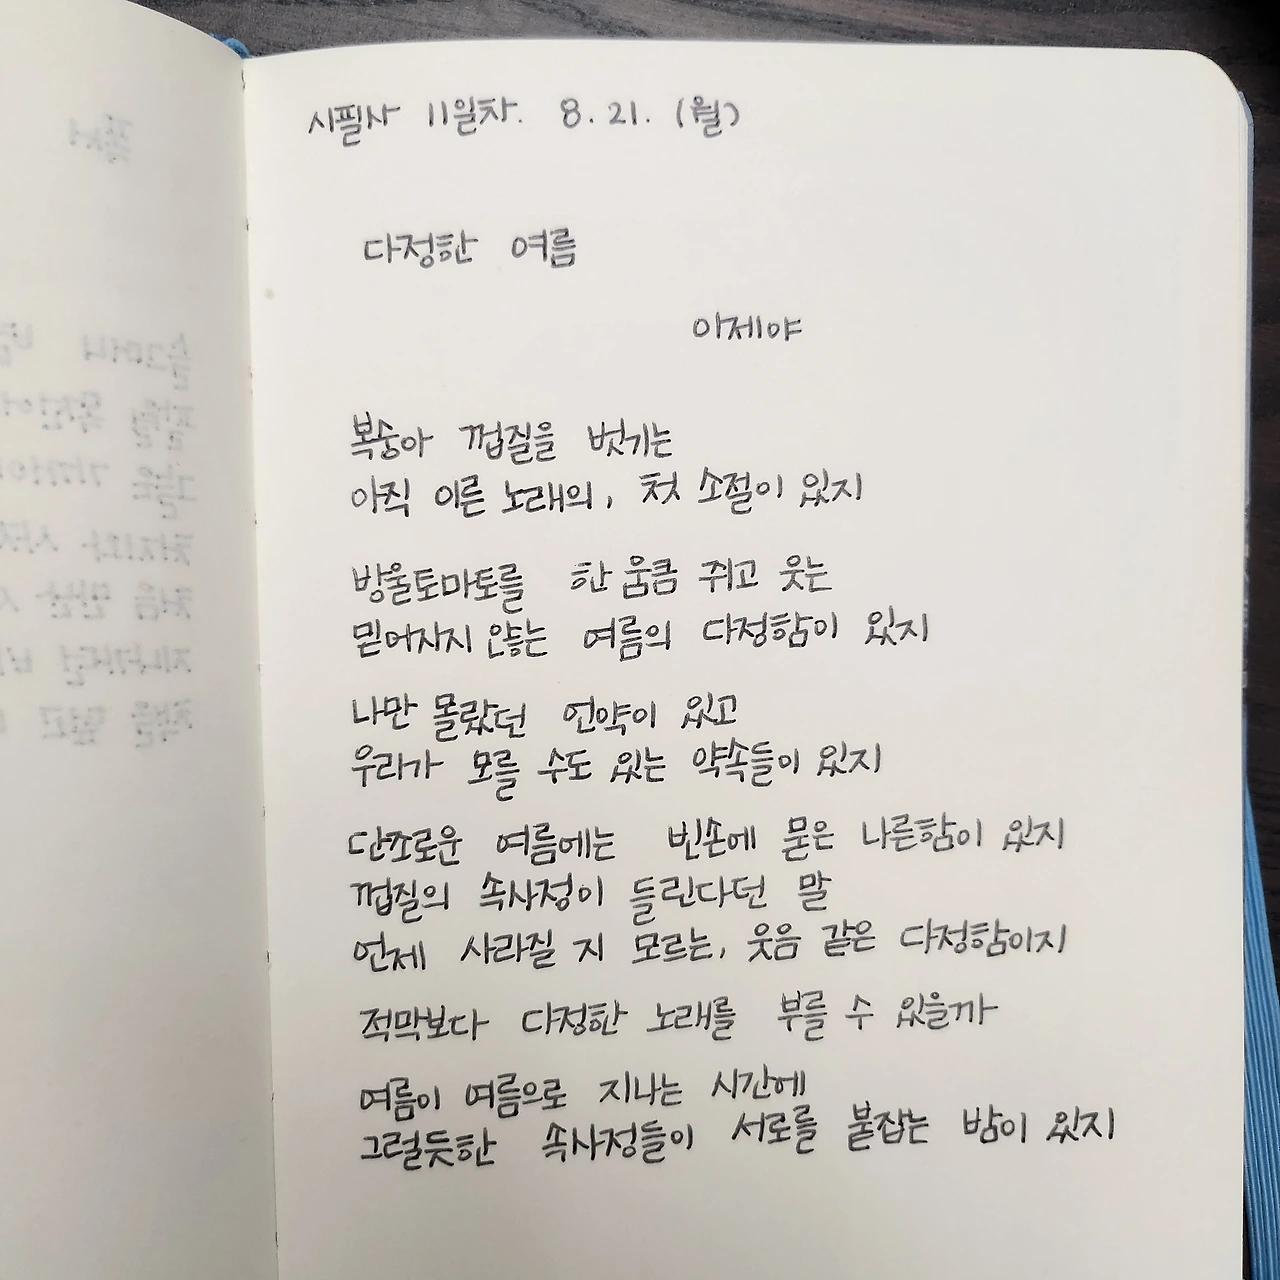 시필사 11일차. 8. 21. (월)
다정한 여름
이제야
복숭아 껍질을 벗기는
아직 이른 노래의, 첫 소절이 있지
방울토마토를 한 움큼 쥐고 웃는
믿어지지 않는 여름의 다정함이 있지
나만 몰랐던 언약이 있고
우리가 모를 수도 있는 약속들이 있지
단조로운 여름에는 빈손에 묻은 나른함이 있지
껍질의 속사정이 들린다던 말
언제 사라질 지 모르는, 웃음 같은 다정함이지
적막보다 다정한 노래를 부를 수 있을까
여름이 여름으로 지나는 시간에
그럴듯한 속사정들이 서로를 붙잡는 밤이 있지